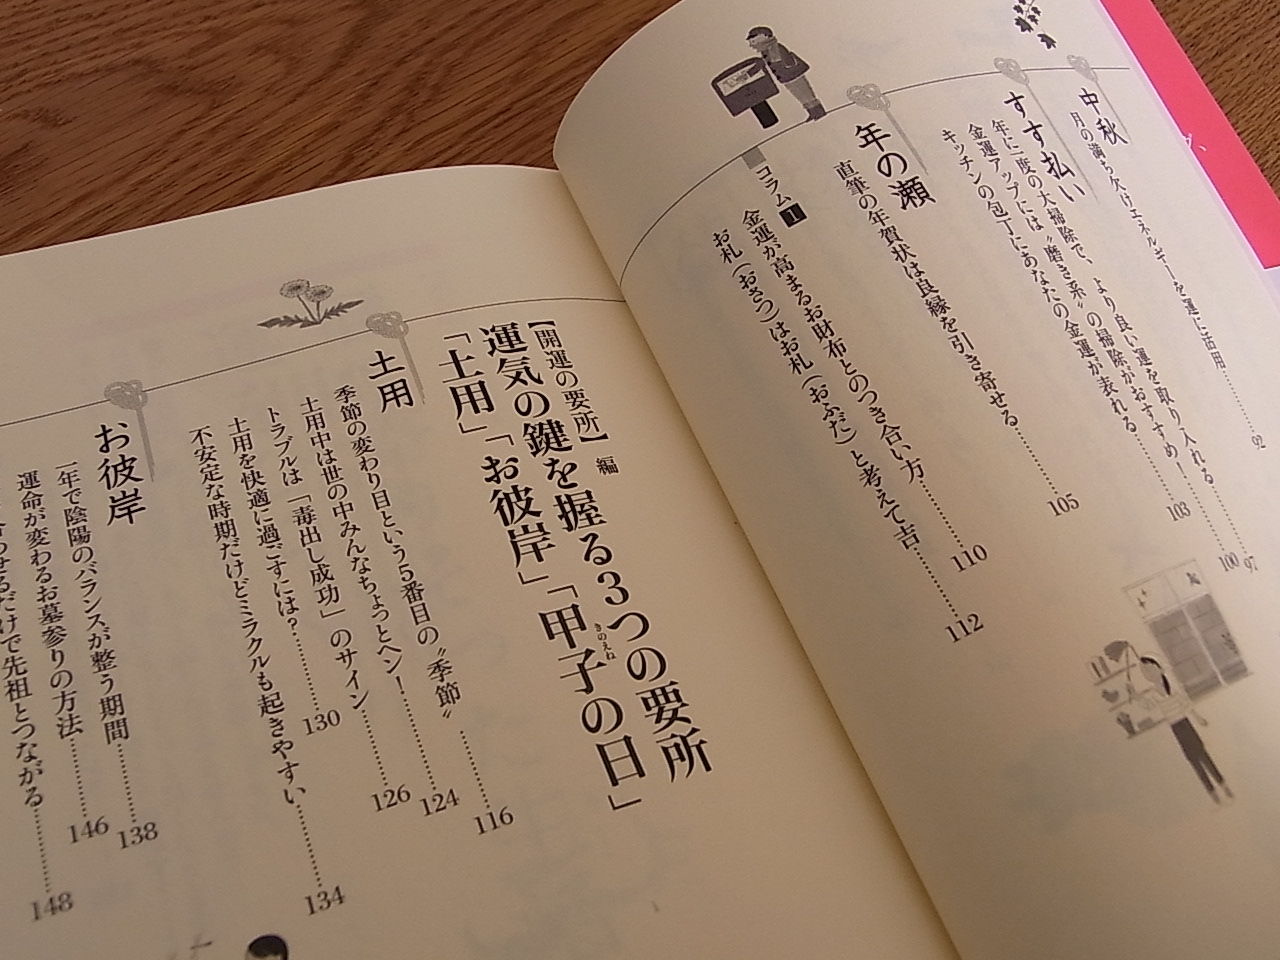 中秋
月の満ち欠けエネルギーを運に活用………92
すす払い………97
年に一度の大掃除で、より良い運を取り入れる………100
金運アップには〝磨き系〟の掃除がおすすめ!………103
キッチンの包丁にあなたの金運が表れる
年の瀬
直筆の年賀状は良縁を引き寄せる………105
コラム1
金運が高まるお財布とのつき合い方………110
お札(おさつ)はお札(おふだ)と考えて吉………112
【開運の要所】編
運気の鍵を握る3つの要所
「土用」「お彼岸」「甲子の日」
きのえね
土用
季節の変わり目という5番目の〝季節〟………116
土用中は世の中みんなちょっとヘン!………124
トラブルは「毒出し成功」のサイン………126
土用を快適に過ごすには?………130
不安定な時期だけどミラクルも起きやすい………134
お彼岸
一年で陰陽のバランスが整う期間………138
運命が変わるお墓参りの方法………146
わせるだけで先祖とつながる………148